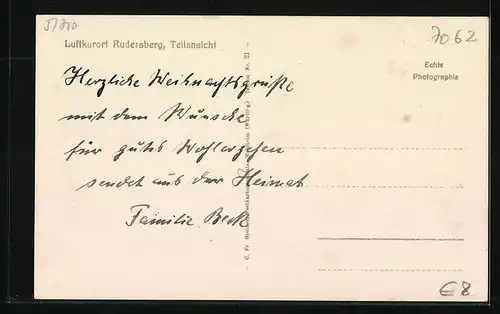 51710
7062
Luftkurort Rudersberg, Teilansicht
Echte
Photographie
Herzliche Weihnachtsgrüße
mit dem Wunsche
für gutes Wohlergehen
sendet aus der Heimat
Familie Beck
€8